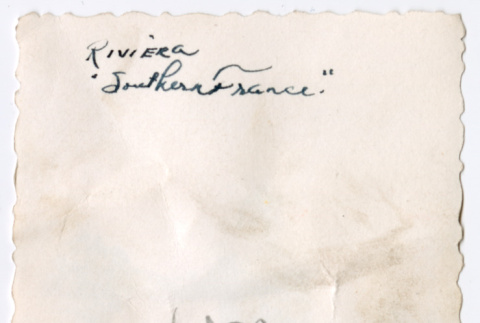 Riviera
"Southern France."